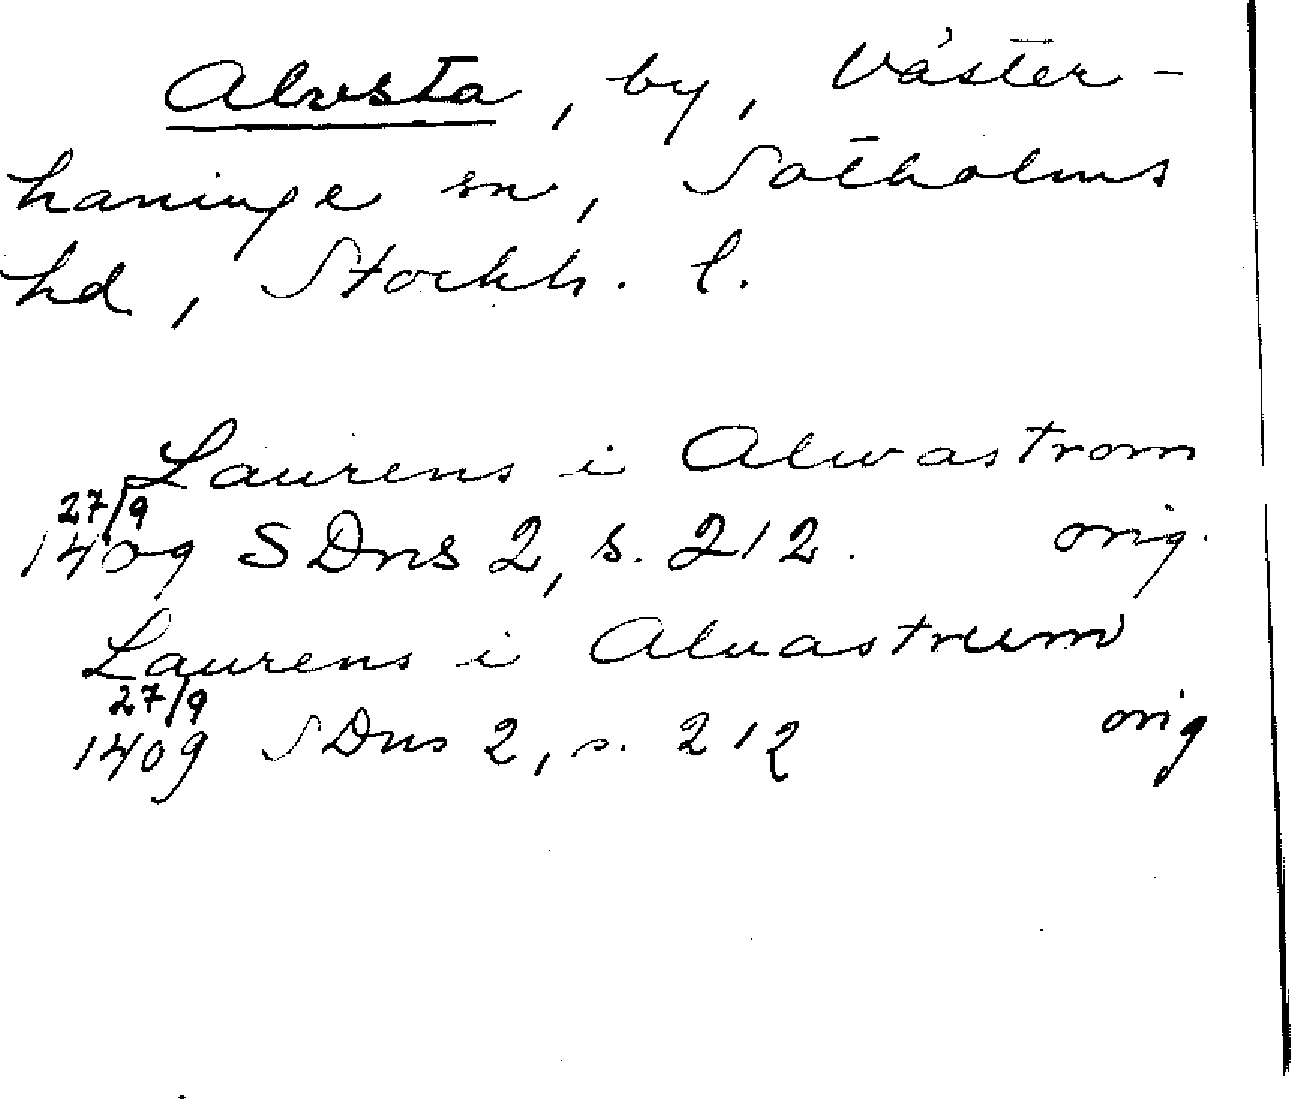 Alvsta, by, Väster-
haninge sn, Sotholms
hd, Stockh. l.
Laurens i Alwastrom
27/9
1409 SDns 2, s. 212. orig.
Laurens i Aluastrum
27/9
1409 SDns 2, s. 212 orig